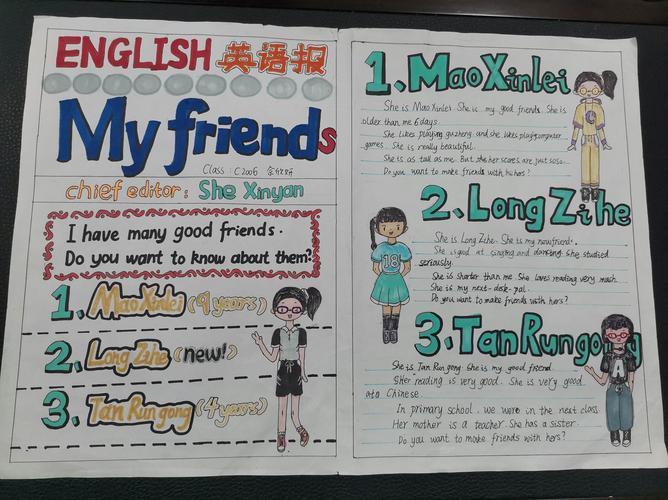 ENGLISH 英语报
My friends
Class: C2006
chief editor: She Xinyan
I have many good friends.
Do you want to know about them?
1、Mao Xinlei (9 years)
2、Long Zihe (new!)
3、Tan Run gong (4 years)
1、Mao Xinlei
She is Mao Xinlei. She is my good friends. She is
older than me 6 days.
She likes playing guzheng and she likes playing computer
games. She is really beautiful.
She is as tall as me. But she her scores are just soso.
Do you want to make friends with hers?
2、Long Zihe
She is Long Zihe. She is my new friend.
She is good at singing and dancing. She studied
seriously.
She is shorter than me. She loves reading very much.
She is my next-desk-pal.
Do you want to make friends with hers?
18
3、Tan Run gong
She is Tan Run gong. She is my good friend.
Her reading is very good. She is very good
at Chinese.
In primary school, we were in the next class.
Her mother is a teacher. She has a sister.
Do you want to make friends with hers?
A